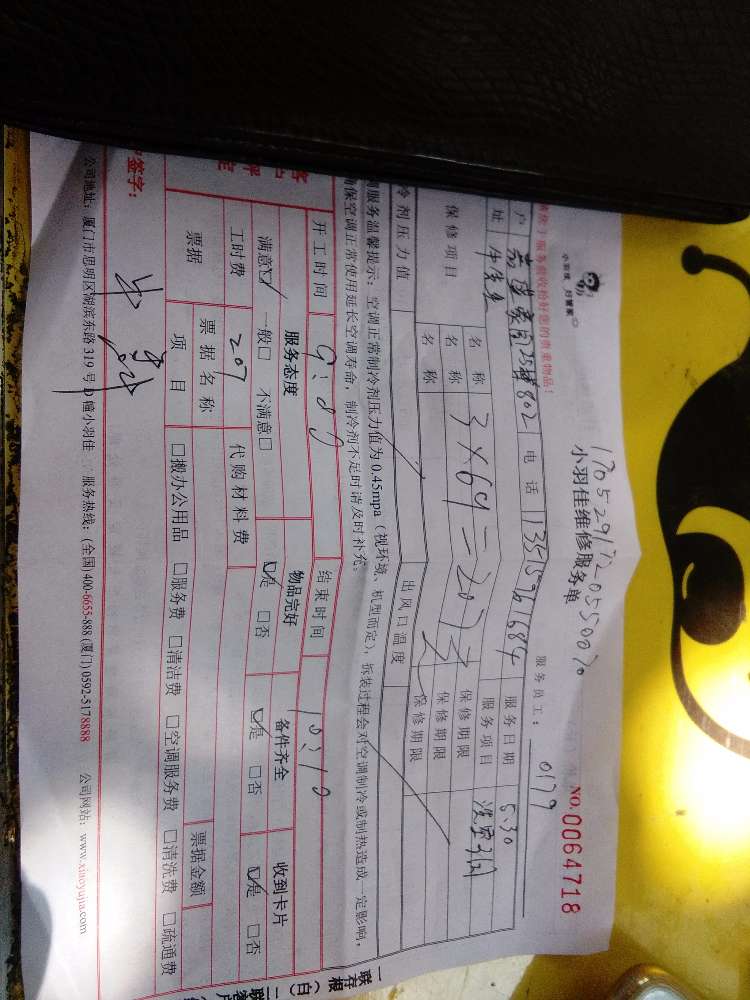 小羽佳 好管家
小羽佳维修服务单
NO.0064718
服务员工: 0179
于服务前收拾好您的贵重物品!
户 25 802 电话 服务日期 5.30
址 牛先生 服务项目
保修项目 名称 3×69=207元 保修期限
名称 保修期限
名称 保修期限
冷剂压力值 出风口温度
调服务温馨提示: 空调正常制冷剂压力值为 0.45mpa (视环境、机型而定), 拆装过程会对空调制冷或制热造成一定影响,
确保空调正常使用延长空调寿命, 制冷剂不足时请及时补充。
开工时间 结束时间 10:10
服务态度 物品完好 备件齐全 收到卡片
满意☑ 一般□ 不满意□ ☑是 □否 ☑是 □否 ☑是 □否
工时费 207 代购材料费
票据 票据名称 票据金额
项目 □搬办公用品 □服务费 □清洁费 □空调服务费 □清洗费 □疏通费
签字:
公司地址: 厦门市思明区湖滨东路 319 号 D 幢小羽佳 服务热线: (全国) 400-6655-888 (厦门) 0592-5178888 公司网站: www.xiaoyujia.com
一联存根(白)二联客户